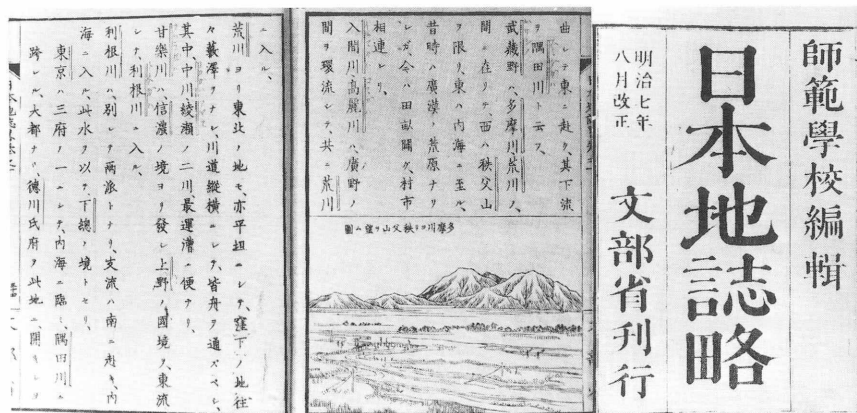 師範學校編輯
日本地誌略
明治七年
八月改正
文部省刊行
曲レテ東ニ赴ク、其下流
ヲ隅田川ト云フ、
武藏野ハ、多摩川荒川ノ、
間ニ在リテ、西ハ秩父山
ヲ限リ、東ハ內海ニ至ル、
昔時ハ廣漠ノ荒原ナリ
シガ、今ハ田畝闢ケ、村市
相連レリ、
入間川、高麗川ハ、廣野ノ
間ヲ環流シテ、共ニ荒川
多摩川ヨリ秩父山ヲ望ム圖
ニ入ル、
荒川ヨリ東北ノ地モ、亦平坦ニシテ、窪下ノ地往
々藪澤ヲナシ、川道縱橫ニシテ、皆舟ヲ通ズベシ、
其中、中川綾瀨ノ二川最運漕ニ便ナリ、
甘樂川ハ、信濃ノ境ヨリ發シ、上野ノ國境ヲ、東流
シテ、利根川ニ入ル、
利根川ハ、別レテ兩派トナリ、支流ハ南ニ赴キ、內
海ニ入ル、此水ヲ以テ、下總ノ境トセリ、
東京ハ三府ノ一ニシテ、內海ニ臨ミ、隅田川ニ
跨レル、大都ナリ、德川氏府ヲ此地ニ開キシヨ